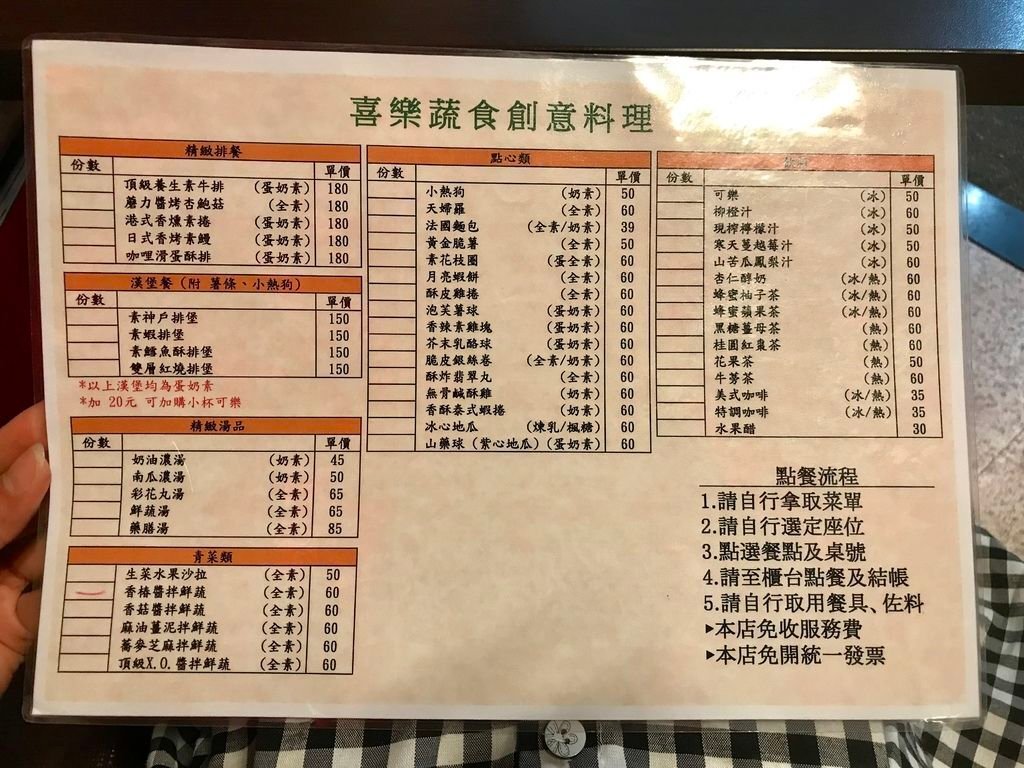 喜樂蔬食創意料理
精緻排餐
份數 單價
頂級養生素牛排 (蛋奶素) 180
蘑力醬烤杏鮑菇 (全素) 180
港式香燻素捲 (蛋奶素) 180
日式香烤素鰻 (蛋奶素) 180
咖哩滑蛋酥排 (蛋奶素) 180
漢堡餐 (附 薯條、小熱狗)
份數 單價
素神戶排堡 150
素蝦排堡 150
素鱈魚酥排堡 150
雙層紅燒排堡 150
*以上漢堡均為蛋奶素
*加 20元 可加購小杯可樂
精緻湯品
份數 單價
奶油濃湯 (奶素) 45
南瓜濃湯 (奶素) 50
彩花丸湯 (全素) 65
鮮蔬湯 (全素) 65
藥膳湯 (全素) 85
青菜類
生菜水果沙拉 (全素) 50
香椿醬拌鮮蔬 (全素) 60
香菇醬拌鮮蔬 (全素) 60
麻油薑泥拌鮮蔬 (全素) 60
蕎麥芝麻拌鮮蔬 (全素) 60
頂級X.O.醬拌鮮蔬 (全素) 60
點心類
份數 單價
小熱狗 (奶素) 50
天婦羅 (全素) 60
法國麵包 (全素/奶素) 39
黃金脆薯 (全素) 50
素花枝圈 (蛋全素) 60
月亮蝦餅 (全素) 60
酥皮雞捲 (全素) 60
泡芙薯球 (蛋奶素) 60
香辣素雞塊 (蛋奶素) 60
芥末乳酪球 (蛋奶素) 60
脆皮銀絲卷 (全素/奶素) 60
酥炸翡翠丸 (全素) 60
無骨鹹酥雞 (奶素) 60
香酥泰式蝦捲 (奶素) 60
冰心地瓜 (煉乳/楓糖) 60
山藥球 (紫心地瓜) (蛋奶素) 60
份數 單價
可樂 (冰) 50
柳橙汁 (冰) 60
現榨檸檬汁 (冰) 50
寒天蔓越莓汁 (冰) 60
山苦瓜鳳梨汁 (冰) 60
杏仁醇奶 (冰/熱) 60
蜂蜜柚子茶 (冰/熱) 60
蜂蜜蘋果茶 (冰/熱) 60
黑糖薑母茶 (熱) 60
桂圓紅棗茶 (熱) 60
花果茶 (熱) 50
牛蒡茶 (熱) 60
美式咖啡 (冰/熱) 35
特調咖啡 (冰/熱) 35
水果醋 30
點餐流程
1.請自行拿取菜單
2.請自行選定座位
3.點選餐點及桌號
4.請至櫃台點餐及結帳
5.請自行取用餐具、佐料
▸本店免收服務費
▸本店免開統一發票